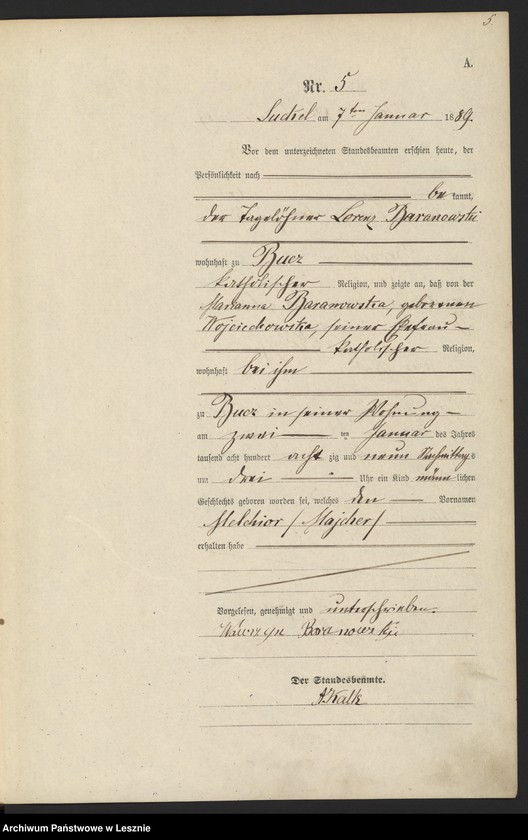 5.
A.
Nr. 5
am 7ten Januar 1889.
Vor dem unterzeichneten Standesbeamten erschien heute, der
Persönlichkeit nach
be kannt,
der Tagelöhner Lorenz Baranowski
wohnhaft zu Bucz
katholischer Religion, und zeigte an, daß von der
Marianna Baranowska, geborenen
Wojciechowska, seiner Ehefrau
katholischer Religion,
wohnhaft bei ihm
zu Bucz in seiner Wohnung
am zwei ten Januar des Jahres
tausend acht hundert acht zig und neun Nachmittags
um drei Uhr ein Kind männ lichen
Geschlechts geboren worden sei, welches den Vornamen
Melchior /Majcher/
erhalten habe
Vorgelesen, genehmigt und unterschrieben.
Wawrzyn Baranowski
Der Standesbeamte.
Kalk
Archiwum Państwowe w Lesznie